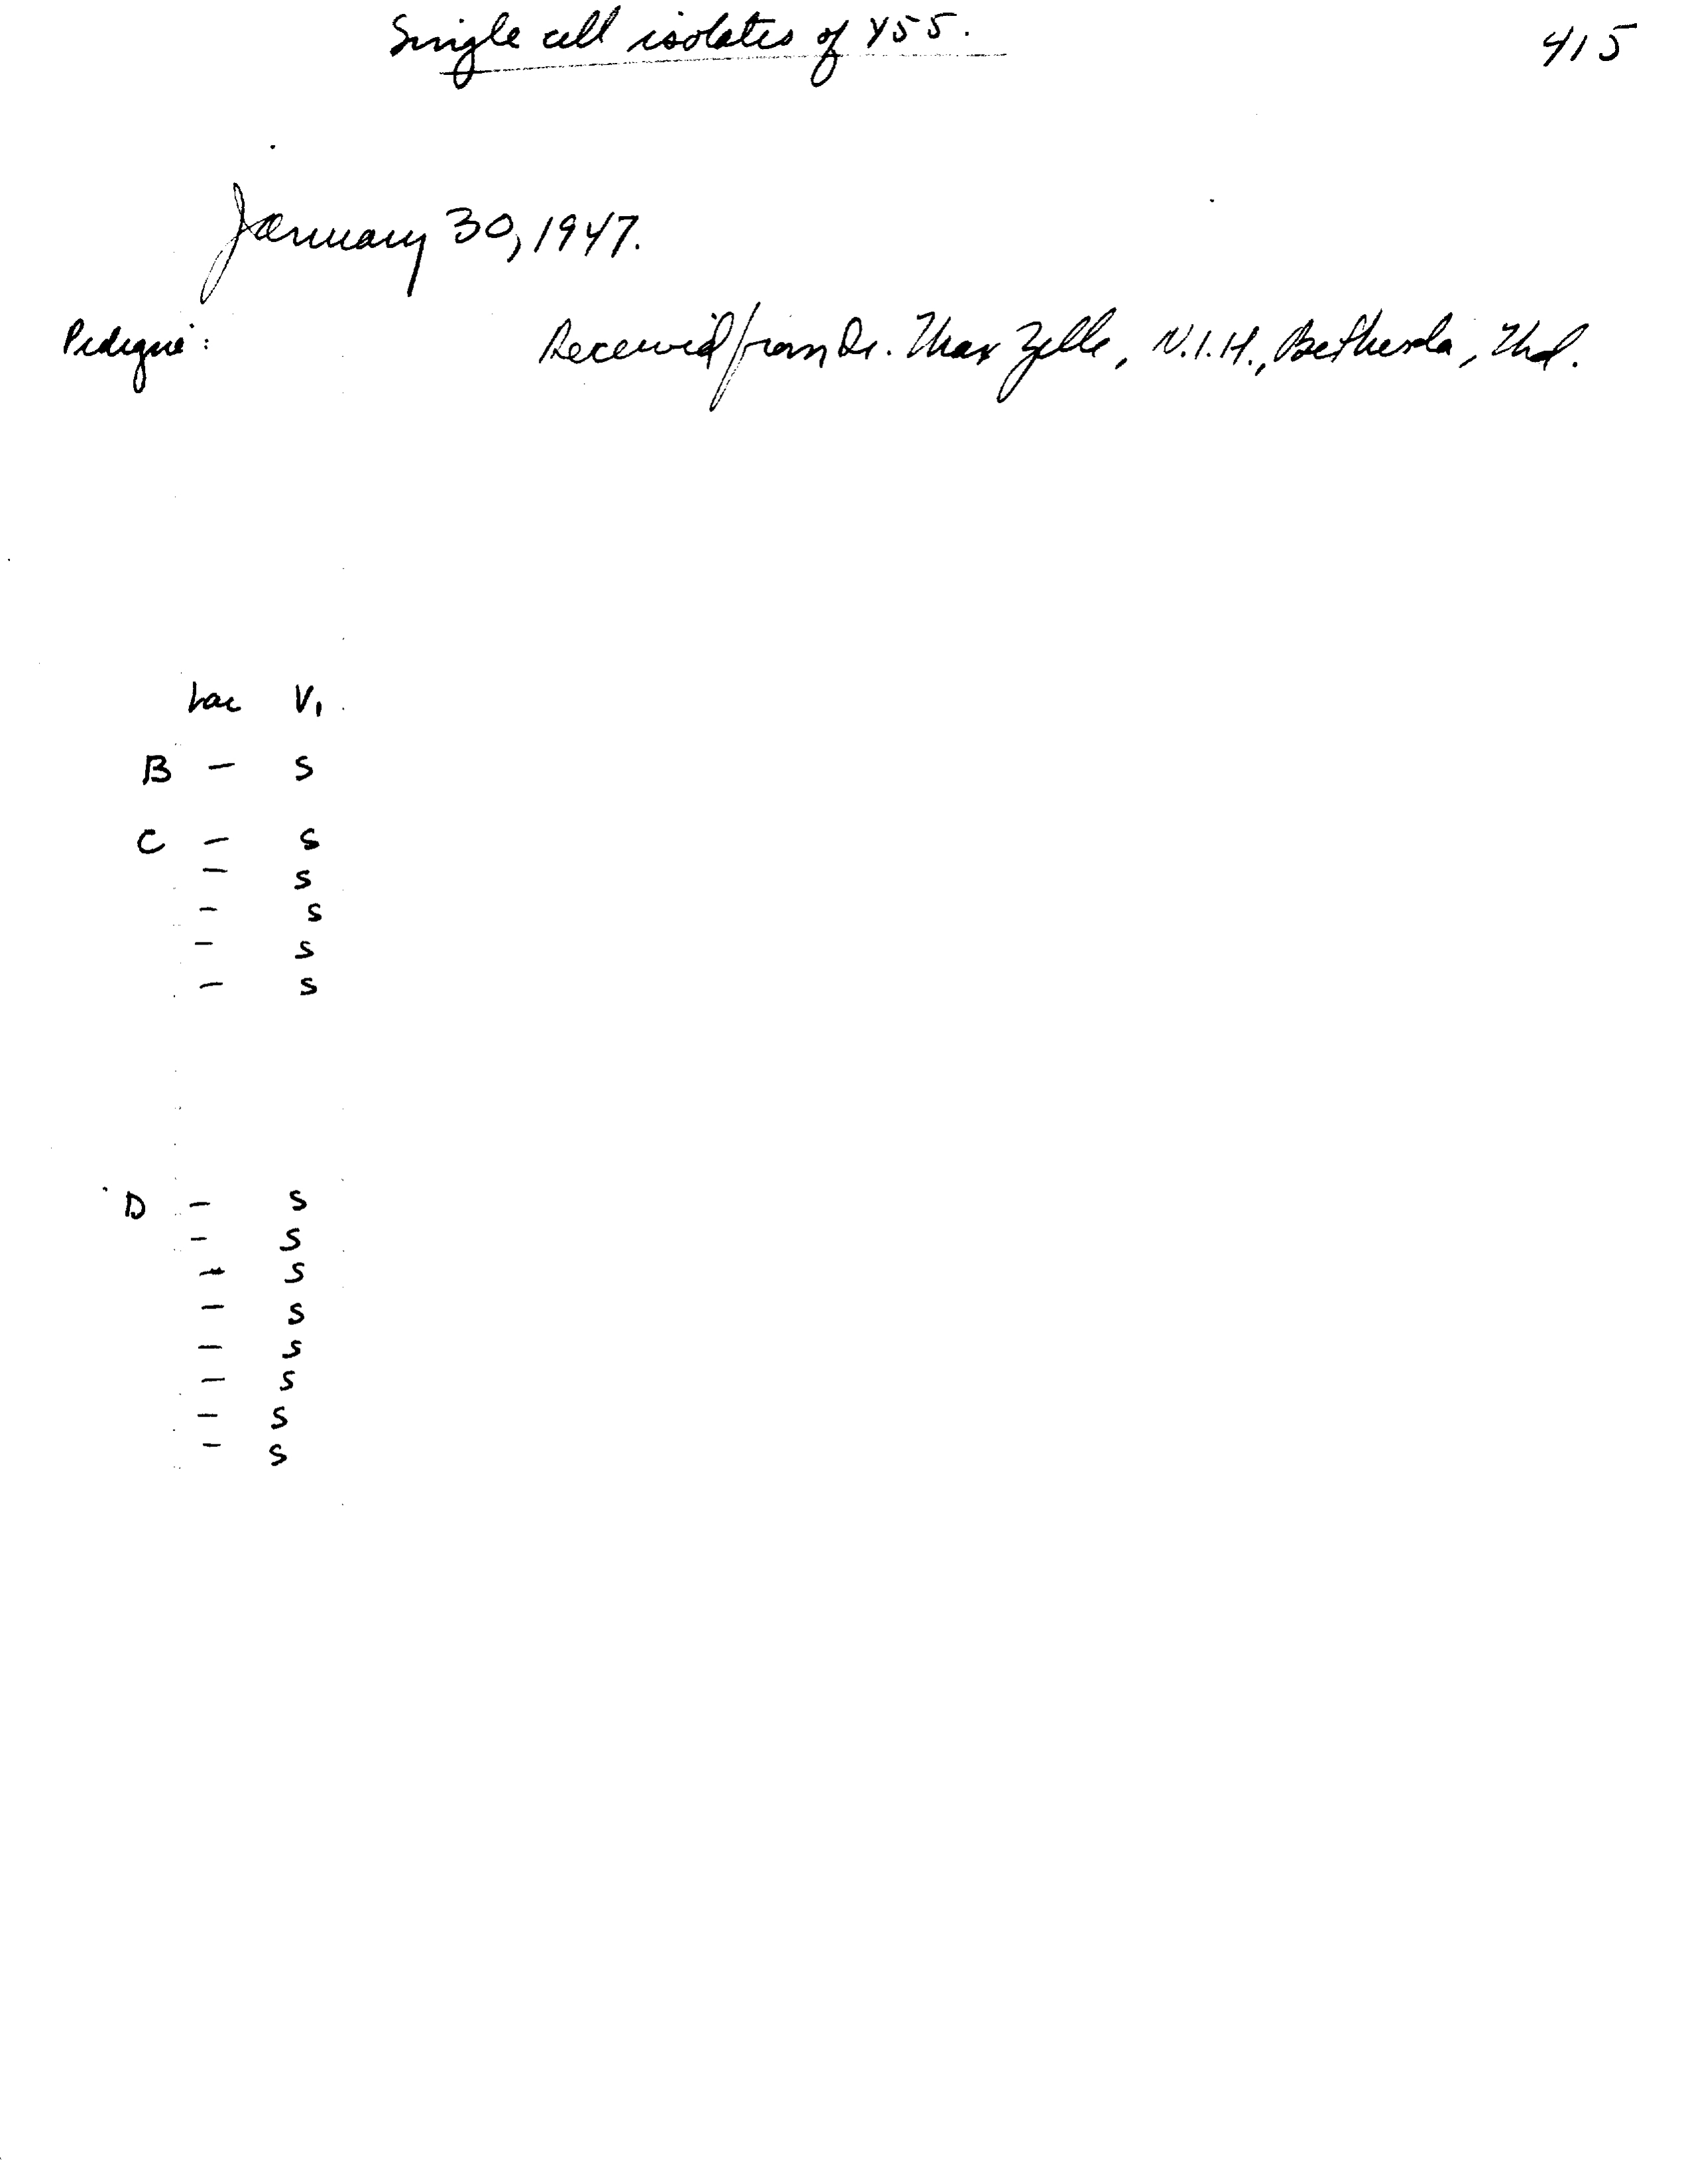 Single cell isolates of Y55. 415
January 30, 1947.
Pedigree: Received from Dr. Max Zelle, N.I.H., Bethesda, Md.
Lac V1
B - S
C - S
- S
- S
- S
- S
D - S
- S
- S
- S
- S
- S
- S
- S